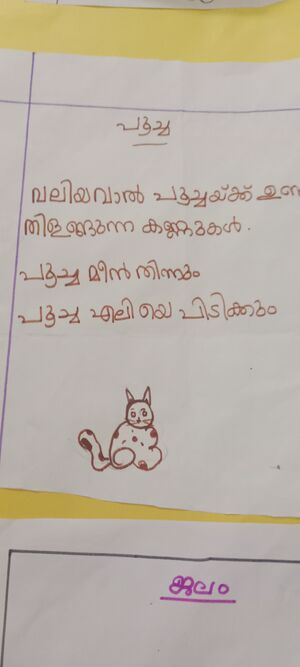 പൂച്ച
വലിയവാൽ പൂച്ചയ്ക്ക്
തിളങ്ങുന്ന കണ്ണുകൾ.
പൂച്ച മീൻ തിന്നും
പൂച്ച എലിയെ പിടിക്കും
ജലം